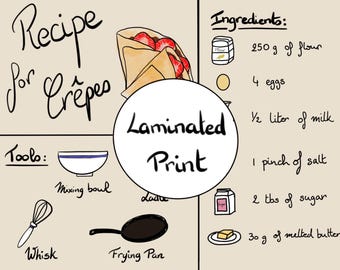 Recipe
for
Crêpes
Ingredients:
250 g of flour
4 eggs
½ liter of milk
1 pinch of salt
2 tbs of sugar
30 g of melted butter
Laminated
Print
Tools:
Mixing bowl
Ladle
Whisk
Frying Pan